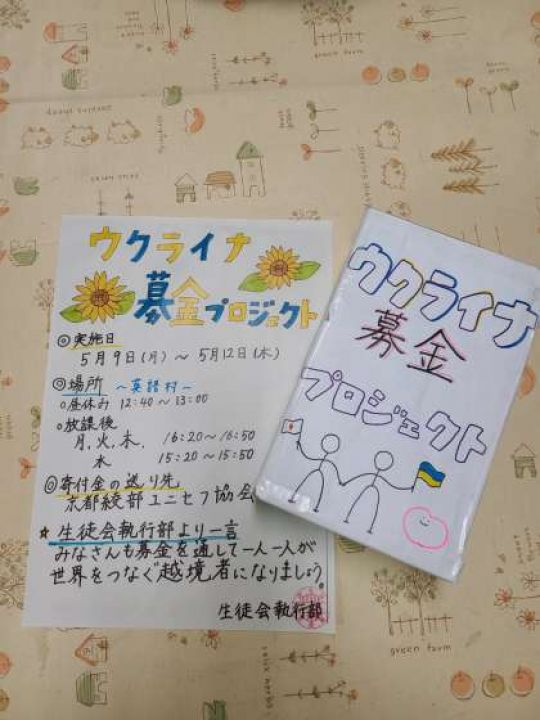 ウクライナ
募金プロジェクト
◎実施日
5月9日(月)～5月12日(木)
◎場所 ～英語村～
○昼休み 12:40～13:00
○放課後
月,火,木, 16:20～16:50
水 15:20～15:50
◎寄付金の送り先
京都綾部ユニセフ協会
★生徒会執行部より一言
みなさんも募金を通して一人一人が
世界をつなぐ越境者になりましょう。
生徒会執行部
ウクライナ
募金
プロジェクト
green farm
green farm